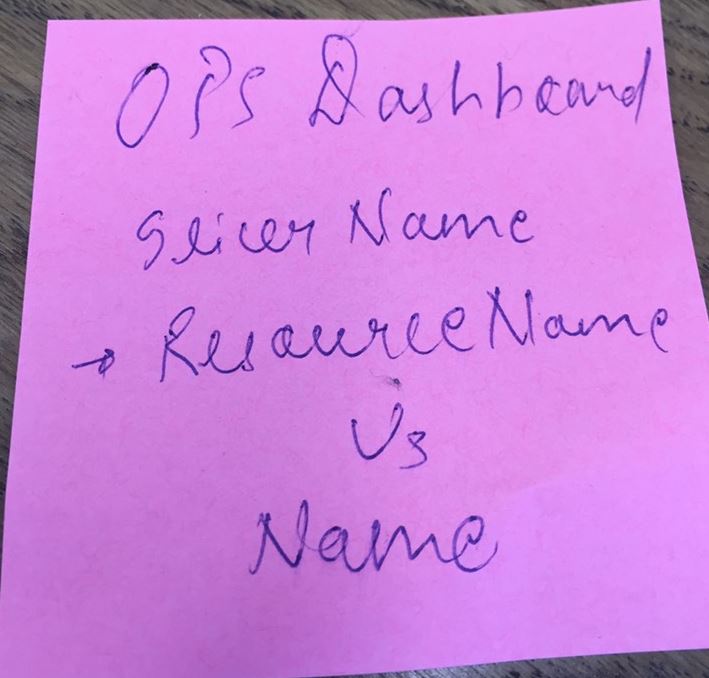 OPS Dashboard
Slicer Name
→ Resource Name
Vs
Name